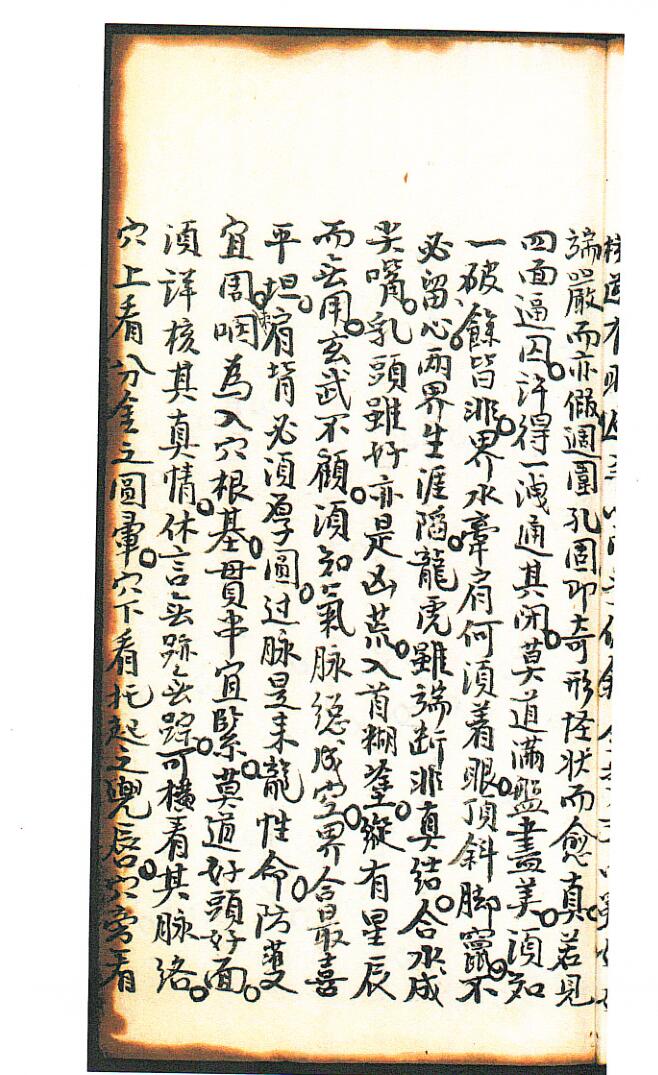 端嚴而亦假週圍孔固即奇形怪状而愈真若見
四面逼囚。許得一洩通其閉。莫道滿盤盡美。須知
一破餘皆非。界水牽肩何須着眼。頂斜脚竄。不
必留心。兩界生涯蹈。龍虎雖端断非真结。合水成
尖嘴。乳頭雖好亦是凶荒。入首糊塗。縱有星辰
而無用。玄武不顧。須知氣脉總成空。界合最喜
平坦。肩背必須厚圓。过脉是来龍性命。防護
宜周。咽為入穴根基。貫串宜緊。莫道好頭好面。
須詳核其真情。休言無跡無踪。可橫看其脉络。
穴上看分金之圓暈。穴下看托起之兜唇。穴旁看